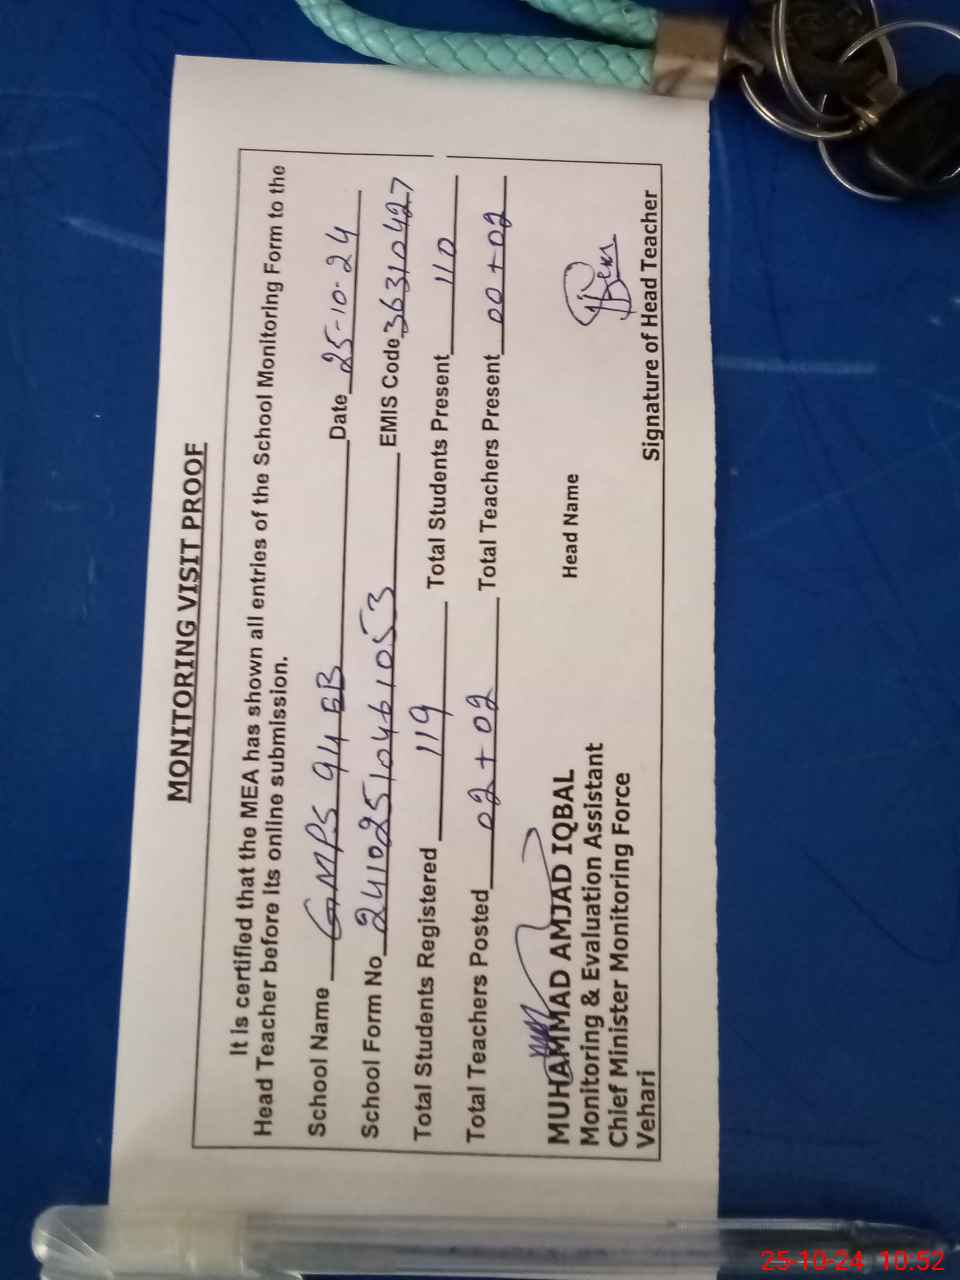 MONITORING VISIT PROOF
It is certified that the MEA has shown all entries of the School Monitoring Form to the
Head Teacher before its online submission.
School Name GMPS 94 EB Date 25-10-24
School Form No 24102510461053 EMIS Code 36310427
Total Students Registered 119 Total Students Present 110
Total Teachers Posted 02+02 Total Teachers Present 00+02
MUHAMMAD AMJAD IQBAL Head Name
Monitoring & Evaluation Assistant
Chief Minister Monitoring Force
Vehari Signature of Head Teacher
25-10-24 10:52